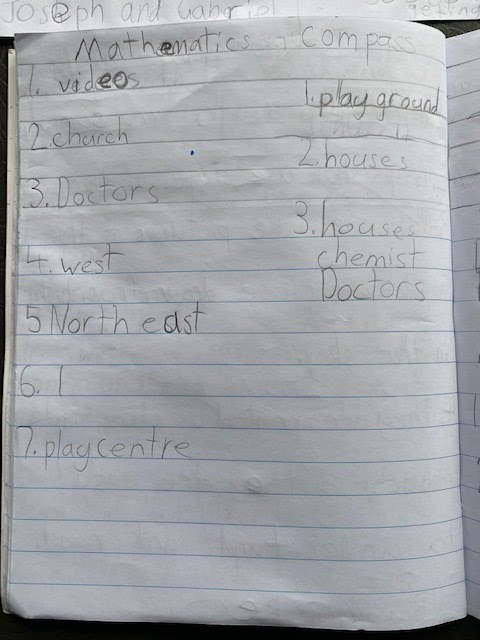 Joseph and Gabriel
getting
Mathematics Compass
1. videos
2. church
3. Doctors
4. west
5 North east
6. 1
7. playcentre
1. play ground
2. houses
3. houses
chemist
Doctors